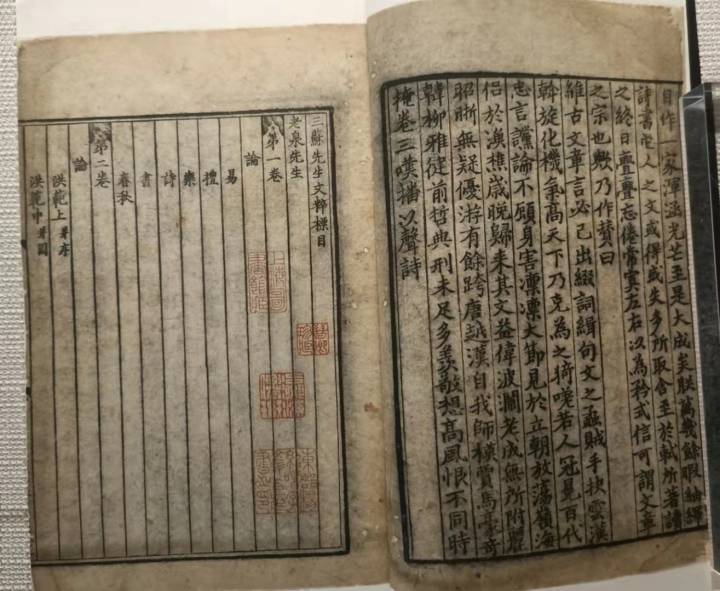 自作一家渾涵光芒至是大成矣朕萬幾餘暇紬繹
詩書他人之文或得或失多所取舍至於軾所著讀
之終日亹亹忘倦常寘左右以為矜式信可謂文章
之宗也歟乃作贊曰
維古文章言必己出綴詞緝句文之蟊賊手抉雲漢
斡旋化機氣高天下乃克為之猗嗟若人冠冕百代
忠言讜論不顧身害凜凜大節見於立朝放蕩嶺海
侶於漁樵歲晚歸來其文益偉波瀾老成無所附麗
昭晰無疑優游有餘跨唐越漢自我師模賈馬豪奇
韓柳雅健前哲典刑未足多羨敬想高風恨不同時
掩卷三嘆播以聲詩
三蘇先生文粹標目
老泉先生
第一卷
論
易
禮
樂
詩
書
春秋
第二卷
論
洪範上并序
洪範中并圖